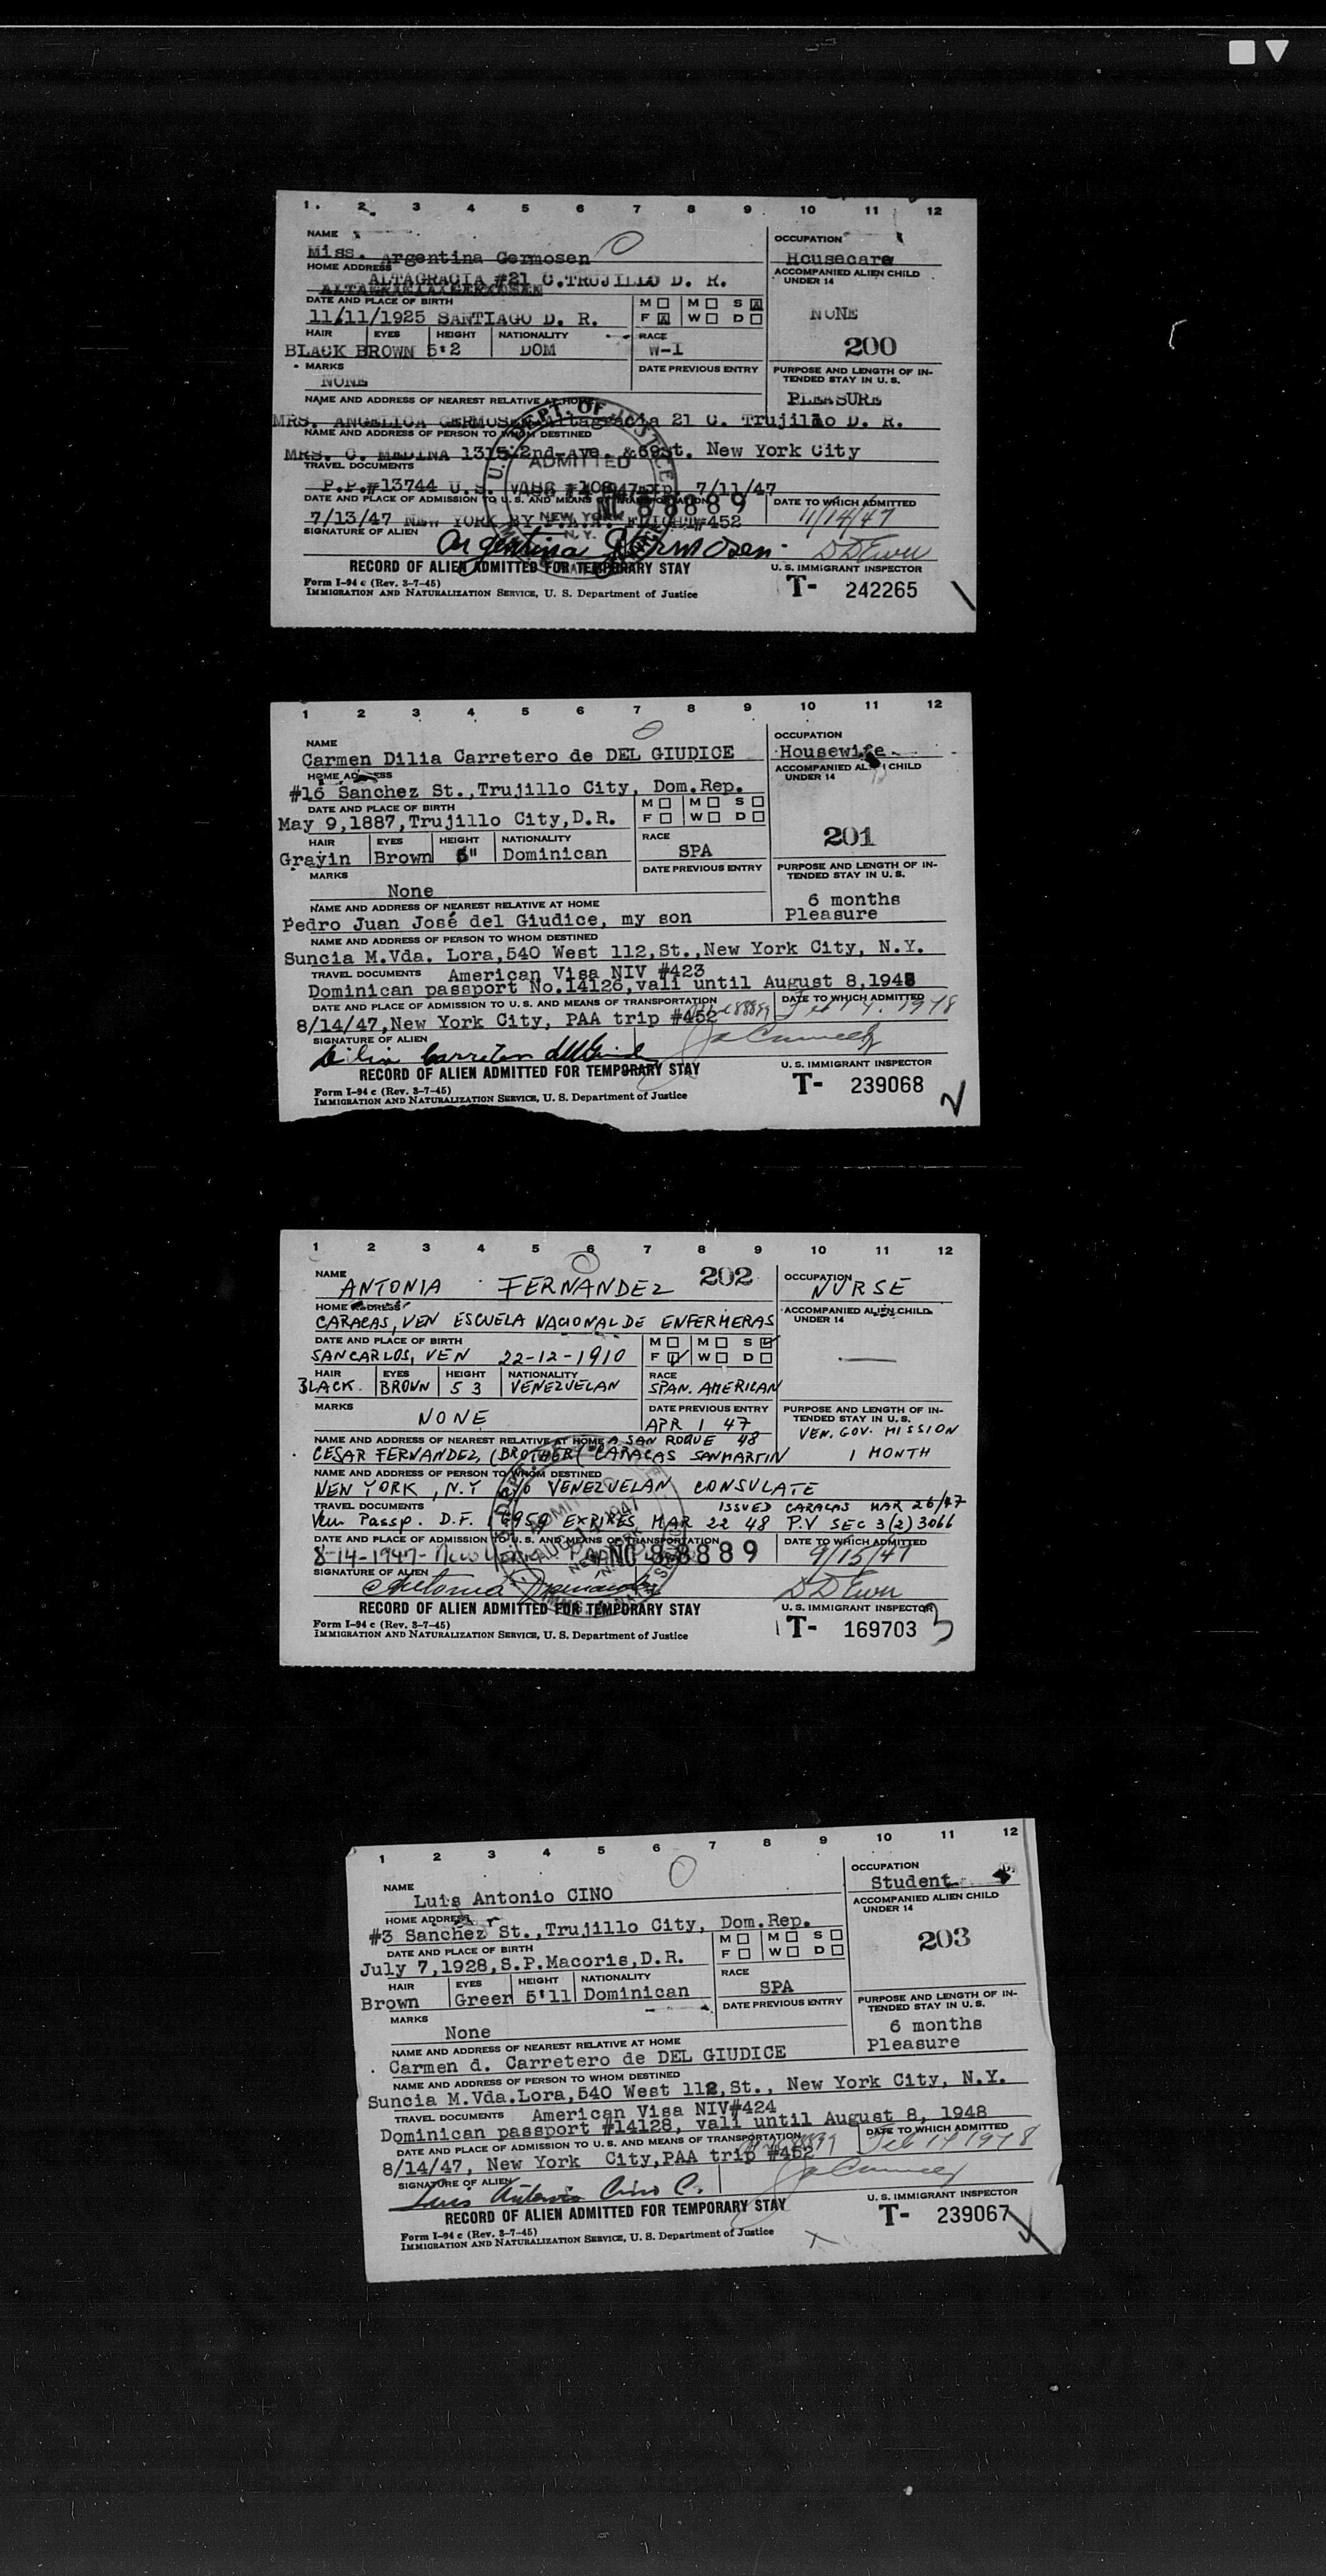 1 2 3 4 5 6 7 8 9 10 11 12
NAME OCCUPATION
Miss. Argentina Germosen Housecare
HOME ADDRESS ACCOMPANIED ALIEN CHILD UNDER 14
ALTAGRACIA #21 C.TRUJILLO D. R.
DATE AND PLACE OF BIRTH M M S
11/11/1925 SANTIAGO D. R. F W D NONE
HAIR EYES HEIGHT NATIONALITY RACE
BLACK BROWN 5'2 DOM W-I 200
MARKS DATE PREVIOUS ENTRY PURPOSE AND LENGTH OF IN-
TENDED STAY IN U. S.
NONE
NAME AND ADDRESS OF NEAREST RELATIVE AT HOME PLEASURE
MRS. ANGELICA GERMOSEN altagracia 21 C. Trujillo D. R.
NAME AND ADDRESS OF PERSON TO WHOM DESTINED
MRS. C. MEDINA 1315 2nd-Ave. &69st. New York City
TRAVEL DOCUMENTS
P.P.#13744 U.S. 7/11/47
DATE AND PLACE OF ADMISSION TO U. S. AND MEANS OF TRANSPORTATION DATE TO WHICH ADMITTED
NC 88889 11/14/47
7/13/47 NEW YORK BY P.A.A. #452
SIGNATURE OF ALIEN Argentina Germosen D D Ewer
RECORD OF ALIEN ADMITTED FOR TEMPORARY STAY U. S. IMMIGRANT INSPECTOR
Form I-94 c (Rev. 3-7-45) T- 242265
IMMIGRATION AND NATURALIZATION SERVICE, U. S. Department of Justice
U.S. DEPT. OF JUSTICE
ADMITTED
NEW YORK
N.Y.
1 2 3 4 5 6 7 8 9 10 11 12
NAME OCCUPATION
Carmen Dilia Carretero de DEL GIUDICE Housewife
HOME ADDRESS ACCOMPANIED ALIEN CHILD UNDER 14
#16 Sanchez St.,Trujillo City, Dom.Rep.
DATE AND PLACE OF BIRTH M M S
May 9,1887,Trujillo City,D.R. F W D
HAIR EYES HEIGHT NATIONALITY RACE 201
Grayin Brown 5" Dominican SPA
MARKS DATE PREVIOUS ENTRY PURPOSE AND LENGTH OF IN-
TENDED STAY IN U. S.
None
NAME AND ADDRESS OF NEAREST RELATIVE AT HOME 6 months
Pedro Juan José del Giudice, my son Pleasure
NAME AND ADDRESS OF PERSON TO WHOM DESTINED
Suncia M.Vda. Lora,540 West 112,St.,New York City, N.Y.
TRAVEL DOCUMENTS American Visa NIV #423
Dominican passport No.14126,vali until August 8,1948
DATE AND PLACE OF ADMISSION TO U. S. AND MEANS OF TRANSPORTATION DATE TO WHICH ADMITTED
8/14/47,New York City, PAA trip #452 Feb 14. 1948
SIGNATURE OF ALIEN
RECORD OF ALIEN ADMITTED FOR TEMPORARY STAY U. S. IMMIGRANT INSPECTOR
Form I-94 c (Rev. 3-7-45) T- 239068 2
IMMIGRATION AND NATURALIZATION SERVICE, U. S. Department of Justice
1 2 3 4 5 6 7 8 9 10 11 12
NAME ANTONIA FERNANDEZ 202 OCCUPATION NURSE
HOME ADDRESS ACCOMPANIED ALIEN CHILD UNDER 14
CARACAS, VEN ESCUELA NACIONAL DE ENFERMERAS
DATE AND PLACE OF BIRTH M M S
SAN CARLOS, VEN 22-12-1910 F W D
HAIR EYES HEIGHT NATIONALITY RACE
BLACK. BROWN 5 3 VENEZUELAN SPAN. AMERICAN
MARKS DATE PREVIOUS ENTRY PURPOSE AND LENGTH OF IN-
TENDED STAY IN U. S.
NONE APR 1 47 VEN. GOV. MISSION
NAME AND ADDRESS OF NEAREST RELATIVE AT HOME A SAN ROQUE 48
CESAR FERNANDEZ, (BROTHER( CARACAS SANMARTIN 1 MONTH
NAME AND ADDRESS OF PERSON TO WHOM DESTINED
NEW YORK, N.Y c/o VENEZUELAN CONSULATE
TRAVEL DOCUMENTS ISSUED CARACAS MAR 26/47
Ven Passp. D.F. EXPIRES MAR 22 48 P.V SEC 3(2) 3066
DATE AND PLACE OF ADMISSION TO U. S. AND MEANS OF TRANSPORTATION DATE TO WHICH ADMITTED
8-14-1947- New York NC 88889 9/15/47
SIGNATURE OF ALIEN Antonia Fernández D D Ewer
RECORD OF ALIEN ADMITTED FOR TEMPORARY STAY U. S. IMMIGRANT INSPECTOR
Form I-94 c (Rev. 3-7-45) T- 169703 3
IMMIGRATION AND NATURALIZATION SERVICE, U. S. Department of Justice
ADMITTED
AUG 14 1947
NEW YORK
N.Y.
1 2 3 4 5 6 7 8 9 10 11 12
NAME OCCUPATION
Luis Antonio CINO Student
HOME ADDRESS ACCOMPANIED ALIEN CHILD UNDER 14
#3 Sanchez St.,Trujillo City, Dom.Rep.
DATE AND PLACE OF BIRTH M M S
July 7,1928,S.P.Macoris,D.R. F W D 203
HAIR EYES HEIGHT NATIONALITY RACE
Brown Green 5'11 Dominican SPA
MARKS DATE PREVIOUS ENTRY PURPOSE AND LENGTH OF IN-
TENDED STAY IN U. S.
None 6 months
NAME AND ADDRESS OF NEAREST RELATIVE AT HOME Pleasure
Carmen d. Carretero de DEL GIUDICE
NAME AND ADDRESS OF PERSON TO WHOM DESTINED
Suncia M.Vda.Lora,540 West 112,St., New York City, N.Y.
TRAVEL DOCUMENTS American Visa NIV#424
Dominican passport #14128, vali until August 8, 1948
DATE AND PLACE OF ADMISSION TO U. S. AND MEANS OF TRANSPORTATION DATE TO WHICH ADMITTED
8/14/47, New York City,PAA trip #452 Feb 14 1948
SIGNATURE OF ALIEN Luis Antonio Cino C.
RECORD OF ALIEN ADMITTED FOR TEMPORARY STAY U. S. IMMIGRANT INSPECTOR
Form I-94 c (Rev. 3-7-45) T- 239067
IMMIGRATION AND NATURALIZATION SERVICE, U. S. Department of Justice